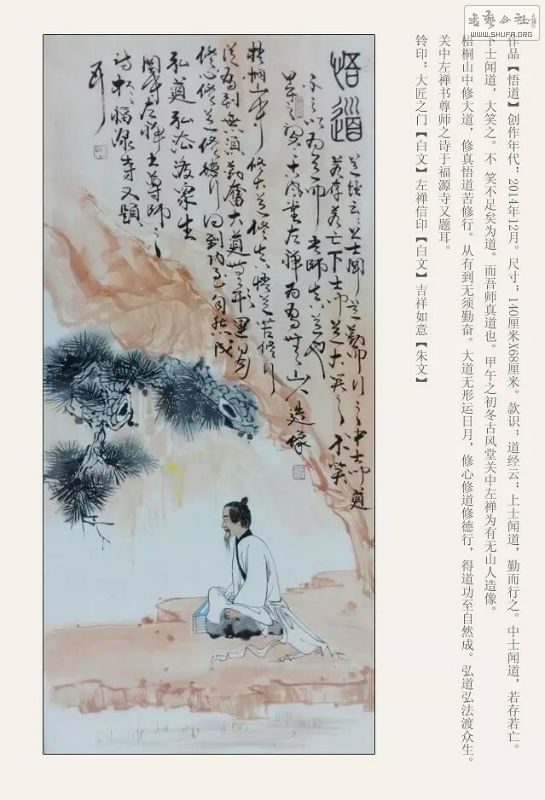 书艺公社
WWW.SHUFA.ORG
作品【悟道】创作年代：2014年12月。尺寸：140厘米X68厘米。款识：道经云：上士闻道，勤而行之。中士闻道，若存若亡。
下士闻道，大笑之。不 笑不足矣为道。而吾师真道也。甲午之初冬古风堂关中左禅为有无山人造像。
梧桐山中修大道，修真悟道苦修行。从有到无须勤奋。大道无形运日月，修心修道修德行，得道功至自然成。弘道弘法渡众生。
关中左禅书尊师之诗于福源寺又题耳。
铃印：大匠之门【白文】左禅信印【白文】吉祥如意【朱文】
悟道
道经云上士闻道勤而行之中士闻道
若存若亡下士闻道大笑之不笑
不足以为道而吾师真道也
甲午之初冬古风堂左禅为有无山人造像
梧桐山中修大道修真悟道苦修行
从有到无须勤奋大道无形运日月
修心修道修德行得道功至自然成
弘道弘法渡众生
关中左禅书尊师之
诗于福源寺又题
耳